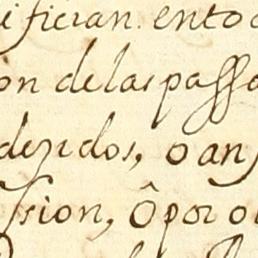 ifician. ento
on delas passa
dezidos, o an
ssion, ô por o